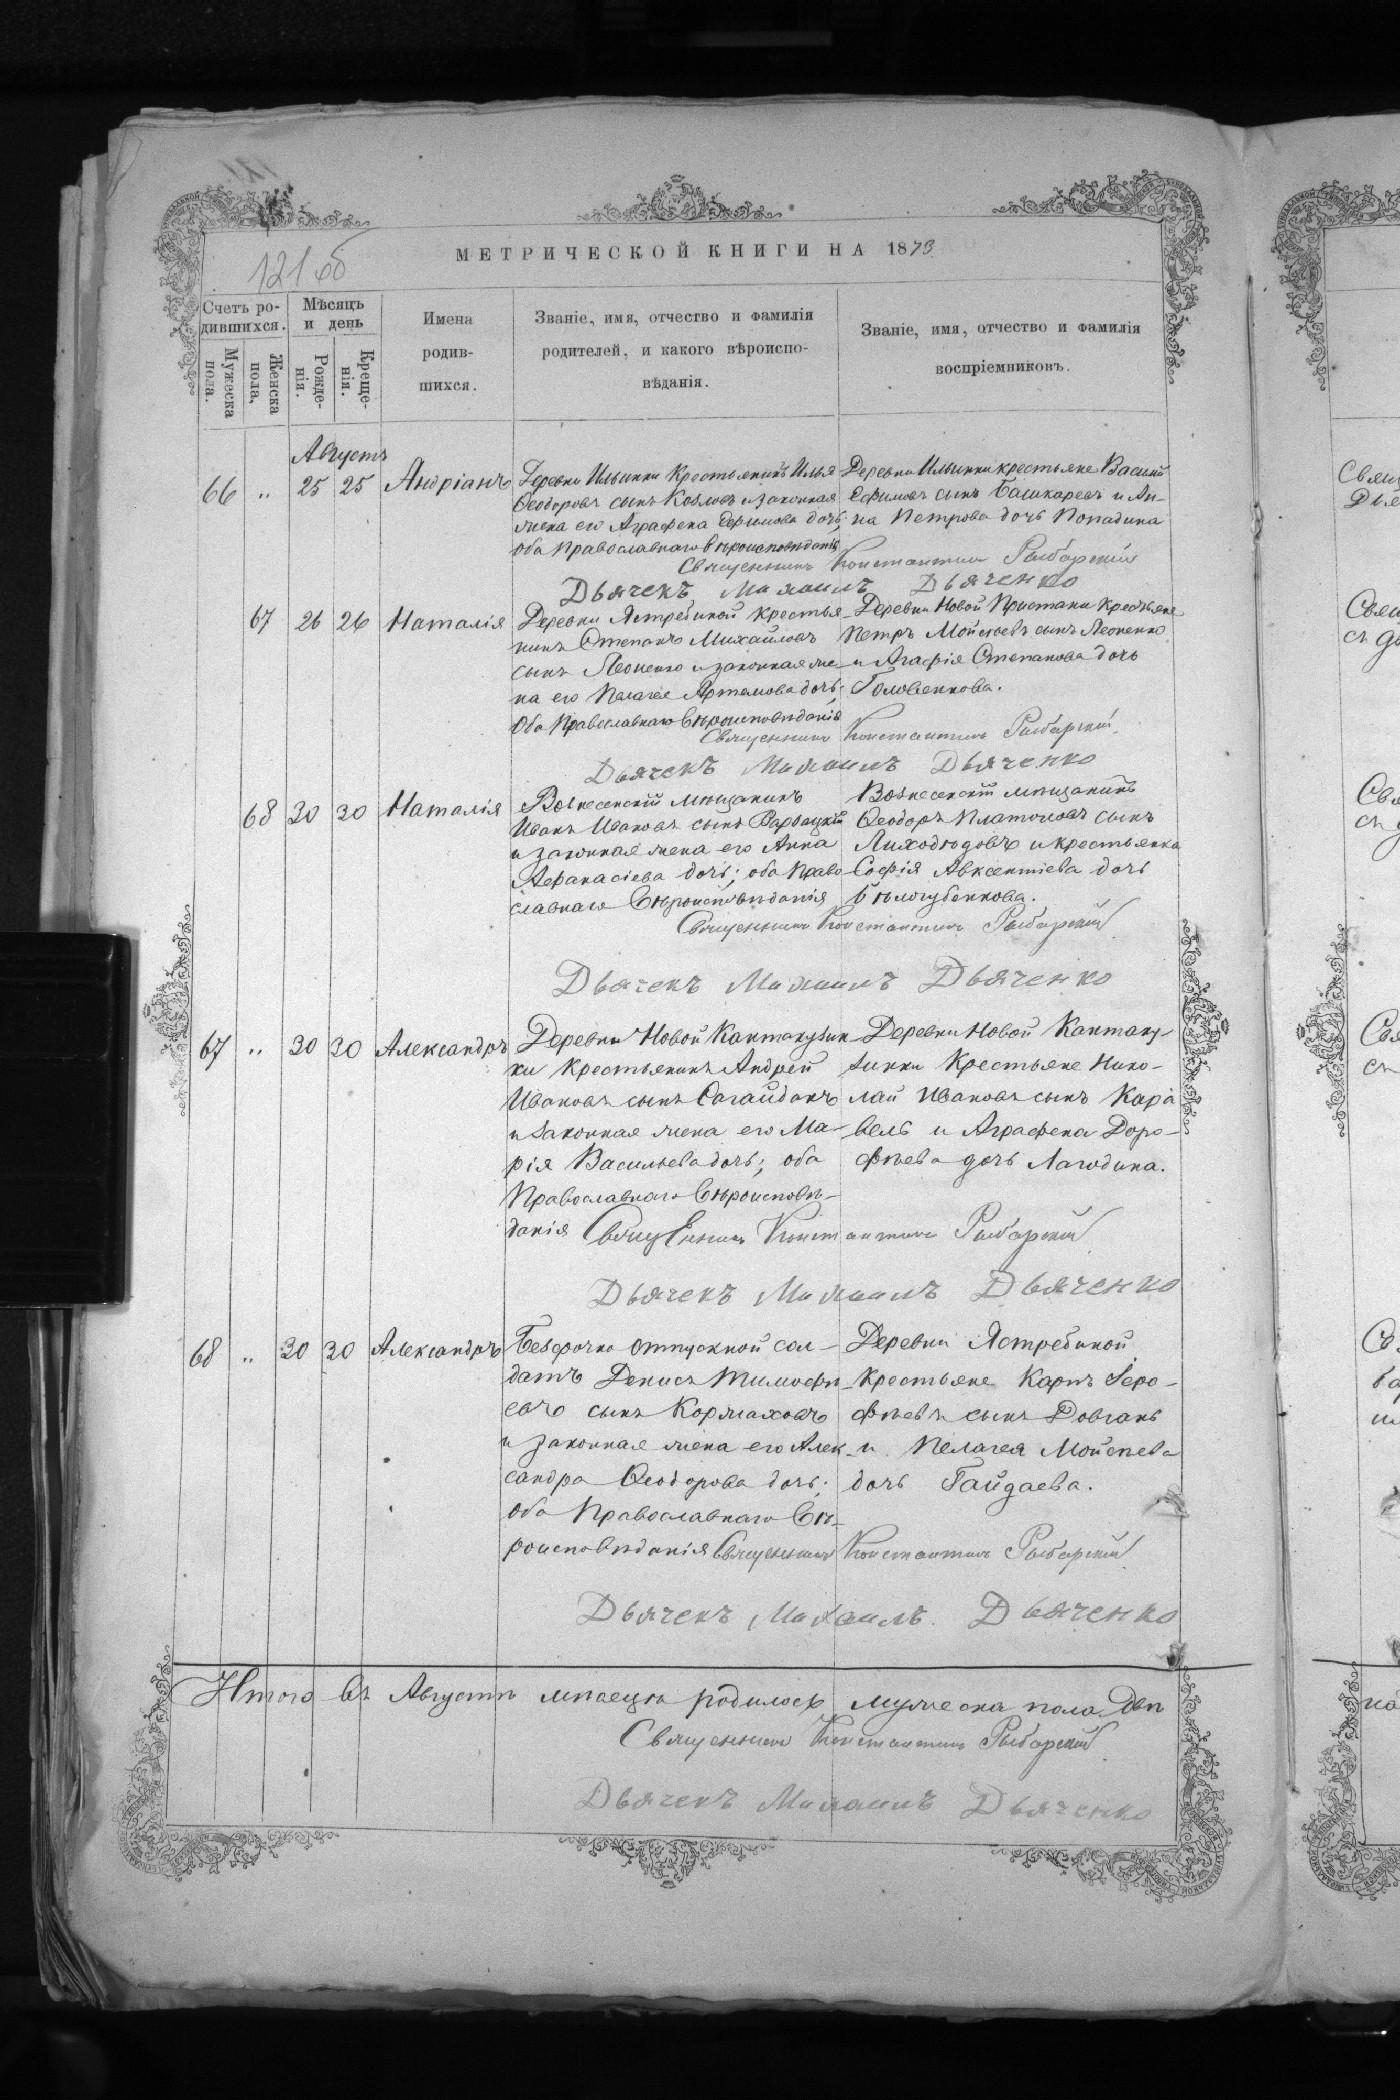 121 об
МЕТРИЧЕСКОЙ КНИГИ НА 1873
Счетъ ро-
дившихся.
Мужеска
пола.
Женска
пола,
Мѣсяцъ
и день
Рожде-
нія.
Креще-
нія.
Имена
родив-
шихся.
Званіе, имя, отчество и фамилія
родителей, и какого вѣроиспо-
вѣданія.
Званіе, имя, отчество и фамилія
воспріемниковъ.
Августъ
66 „ 25 25 Андріанъ
Деревни Ильинки Крестьянинъ Илья
Ѳеодоровъ сынъ Козловъ и законная
жена его Аграфена Ефимова дочь;
оба Православнаго вѣроисповѣданія
Деревни Ильинки крестьяне Василій
Ефимовъ сынъ Башкаревъ и Ан-
на Петрова дочь Попадина
Священникъ Константинъ Рыбарскій
Дьячекъ Михаилъ Дьяченко
67 26 26 Наталія
Деревни Ястребиной крестья-
нинъ Степанъ Михайловъ
сынъ Леоненко и законная же-
на его Пелагея Артемова дочь;
Оба Православнаго вѣроисповѣданія
Деревни Новой Пристани Крестьяне
Петръ Мойсѣевъ сынъ Леоненко
и Агафія Степанова дочь
Головенкова.
Священникъ Константинъ Рыбарскій
Дьячекъ Михаилъ Дьяченко
68 30 30 Наталія
Вознесенскій мѣщанинъ
Иванъ Ивановъ сынъ Варвацкій
и законная жена его Анна
Аѳанасіева дочь; оба Право
славнаго вѣроисповѣданія
Вознесенскій мѣщанинъ
Ѳеодоръ Платоновъ сынъ
Лиходѣдовъ и крестьянка
Софія Авксентіева дочь
Бѣлогубенкова.
Священникъ Константинъ Рыбарскій
Дьячекъ Михаилъ Дьяченко
67 „ 30 30 Александръ
Деревни Новой Кантакузин
ки Крестьянинъ Андрей
Ивановъ сынъ Сагайдакъ
и законная жена его Ма-
рія Васильева дочь; оба
Православнаго вѣроисповѣ-
данія
Деревни Новой Кантаку-
зинки Крестьяне Нико-
лай Ивановъ сынъ Кара
вель и Аграфена Доро-
фѣева дочь Лагодина.
Священникъ Константинъ Рыбарскій
Дьячекъ Михаилъ Дьяченко
68 „ 30 30 Александръ
Безсрочно отпускной сол-
датъ Денисъ Тимофѣ-
евъ сынъ Кормаховъ
и законная жена его Алек-
сандра Ѳеодорова дочь;
Оба Православнаго вѣ-
роисповѣданія
Деревни Ястребиной
Крестьяне Карпъ
фѣевъ сынъ Довгань
и Пелагея Мойсѣева
дочь Гайдаева.
Священникъ Константинъ Рыбарскій
Дьячекъ Михаилъ Дьяченко
Итого въ Августѣ мѣсяцѣ родилось мужеска пола
Священникъ Константинъ Рыбарскій
Дьячекъ Михаилъ Дьяченко